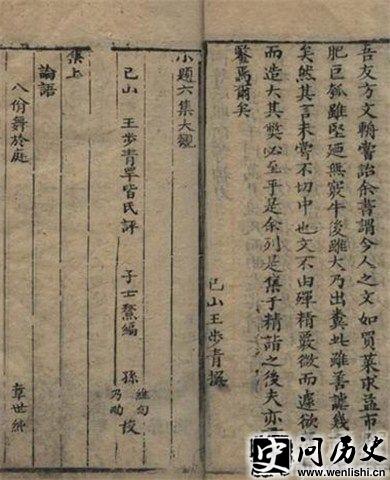 吾友方文輈嘗詒余書謂今人之文如買菜求益市
肥巨瓠雖堅廼無竅牛後雖大乃出糞此雖善謔幾
矣然其言未嘗不切中也文不由殫精覈微而遽欲
而造大其獘必至乎是余列是集于精詣之後夫亦
鑒焉爾矣
巳山王步青撰
小題六集大觀
巳山 王步青罕皆氏評 子士鼇編 孫 維 乃 校
集上
論語
八佾舞於庭
章世純
问历史
www.wenlishi.cn